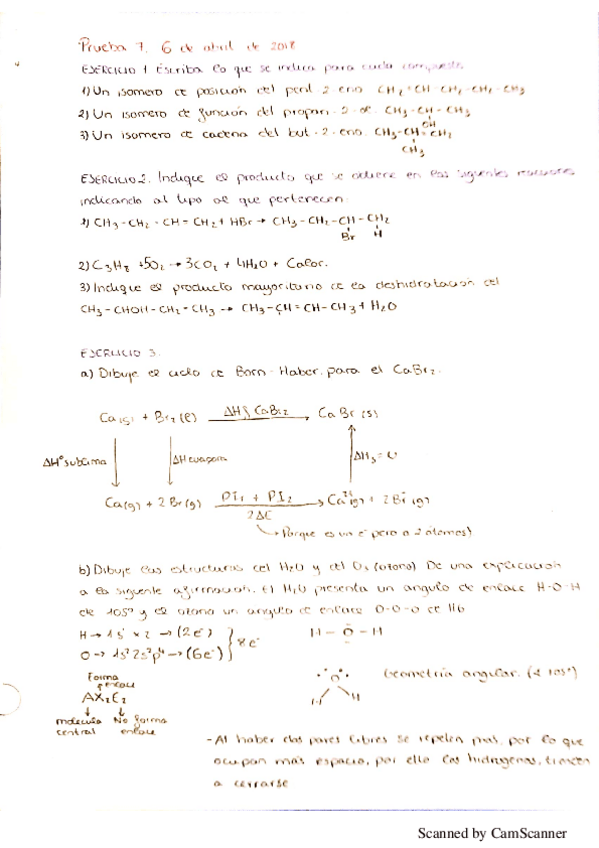 Prueba 7. 6 de abril de 2018
EJERCICIO 1 Escriba lo que se indica para cada compuesto
1) Un isomero de posición del pent-2-eno. CH2=CH-CH2-CH2-CH3
2) Un isomero de función del propan-2-ol. CH3-CH-CH3
OH
3) Un isomero de cadena del but-2-eno. CH3-CH=CH2
CH3
EJERCICIO 2. Indique el producto que se obtiene en las siguientes reacciones
indicando al tipo al que pertenecen:
1) CH3-CH2-CH=CH2+HBr→ CH3-CH2-CH-CH2
Br H
2) C3H8 +5O2 → 3CO2 + 4H2O + Calor.
3) Indique el producto mayoritario de la deshidratación del
CH3-CHOH-CH2-CH3 → CH3-CH=CH-CH3 + H2O
EJERCICIO 3.
a) Dibuje el ciclo de Born-Haber para el CaBr2.
Ca(s) + Br2(l) ΔHf CaBr2 CaBr(s)
ΔHº sublima ΔH evapora ΔH3 = U
Ca(g) + 2Br(g) PI1 + PI2 Ca2+(g) + 2Br-(g)
2ΔE
Porque es un e- pero a 2 átomos)
b) Dibuje las estructuras del H2O y del O3 (ozono) De una explicación
a la siguente afirmación. El H2O presenta un angulo de enlace H-O-H
de 105º y el ozono un angulo de enlace O-O-O de 116
H→ 1s1 x2 → (2e-) } 8e- H-O-H
O→ 1s2 2s2 p4 → (6e-)
Forma
enlace
AX2E2
Geometría angular. (< 105º)
O
H H
molecula No forma
central enlace
-Al haber dos pares libres se repelen más, por lo que
ocupan más espacio, por ello los hidrogenos, tienden
a cerrarse
Scanned by CamScanner